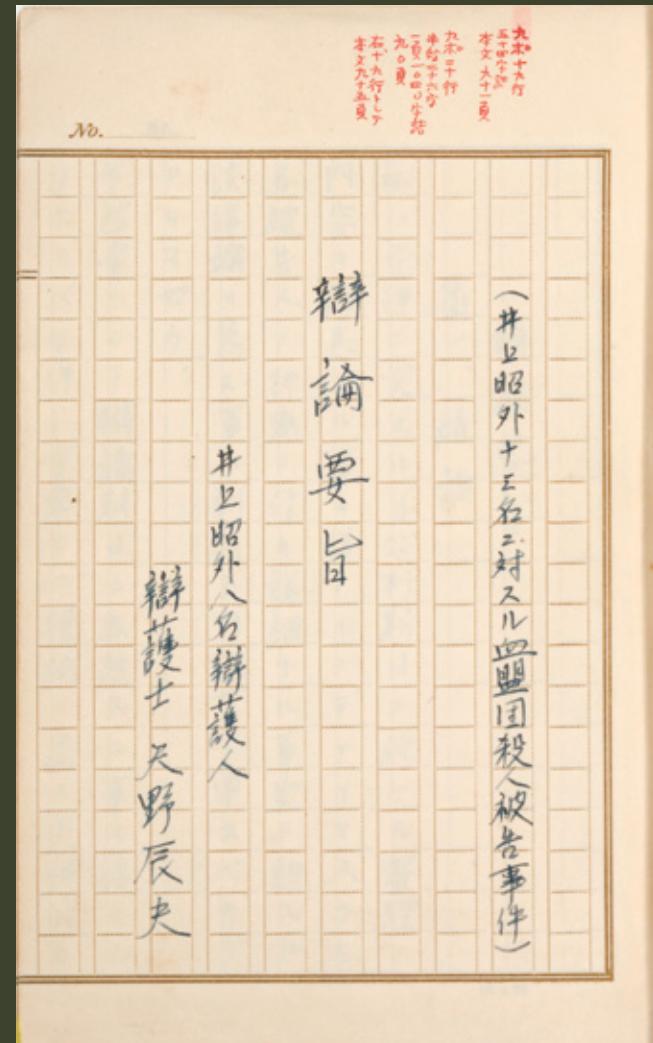 九ポ十九行
五十四字詰
本文六十一頁
九ポ二十行
一頁一〇四〇字詰
九〇頁
右、十九行トシテ
本文九十五頁
No.
（井上昭外十三名ニ対スル血盟団殺人被告事件）
辯論要旨
井上昭外八名辯護人
辯護士 天野辰夫